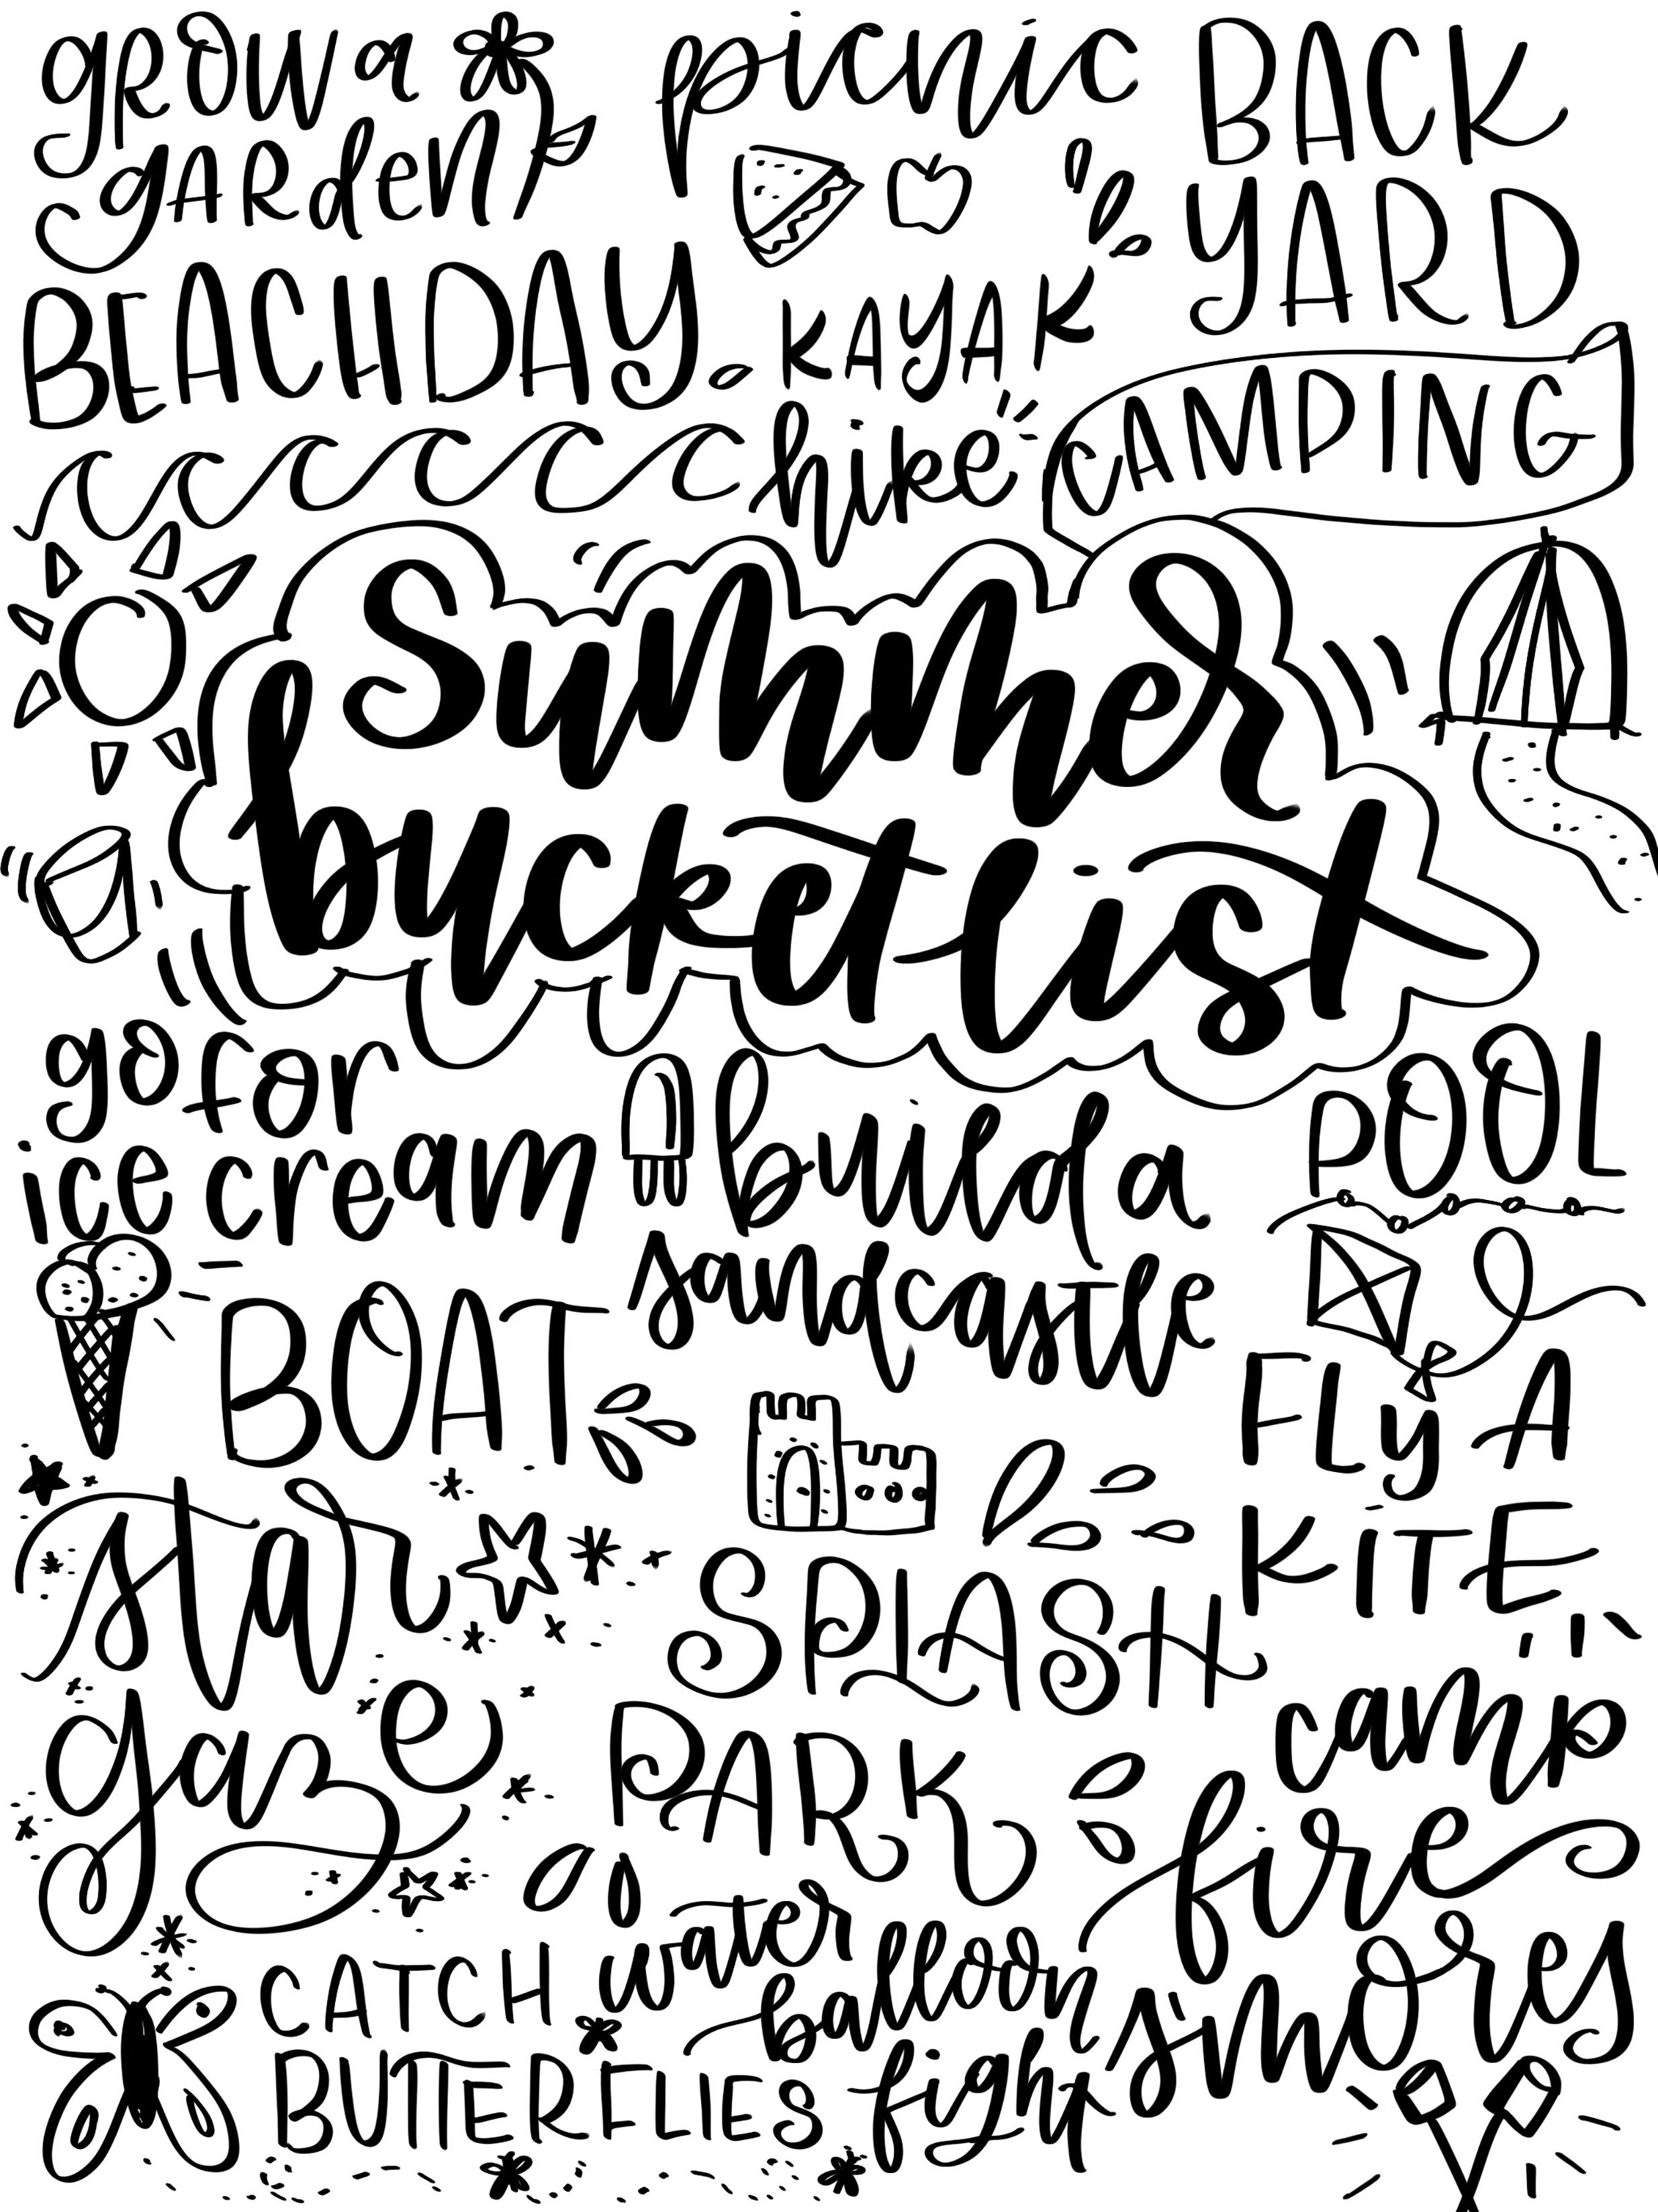 grow a
garden
picnic
BACK
YARD
BEACH DAY
KAYAK
hike
CAMPING
Summer
bucket list
go for
ice cream
build a
sandcastle
POOL
BOAT
FLY A
KITE
star
gaze
SPLASH
PARK
camp
fire
a water
balloon
fight
CATCH
BUTTERFLIES
smores